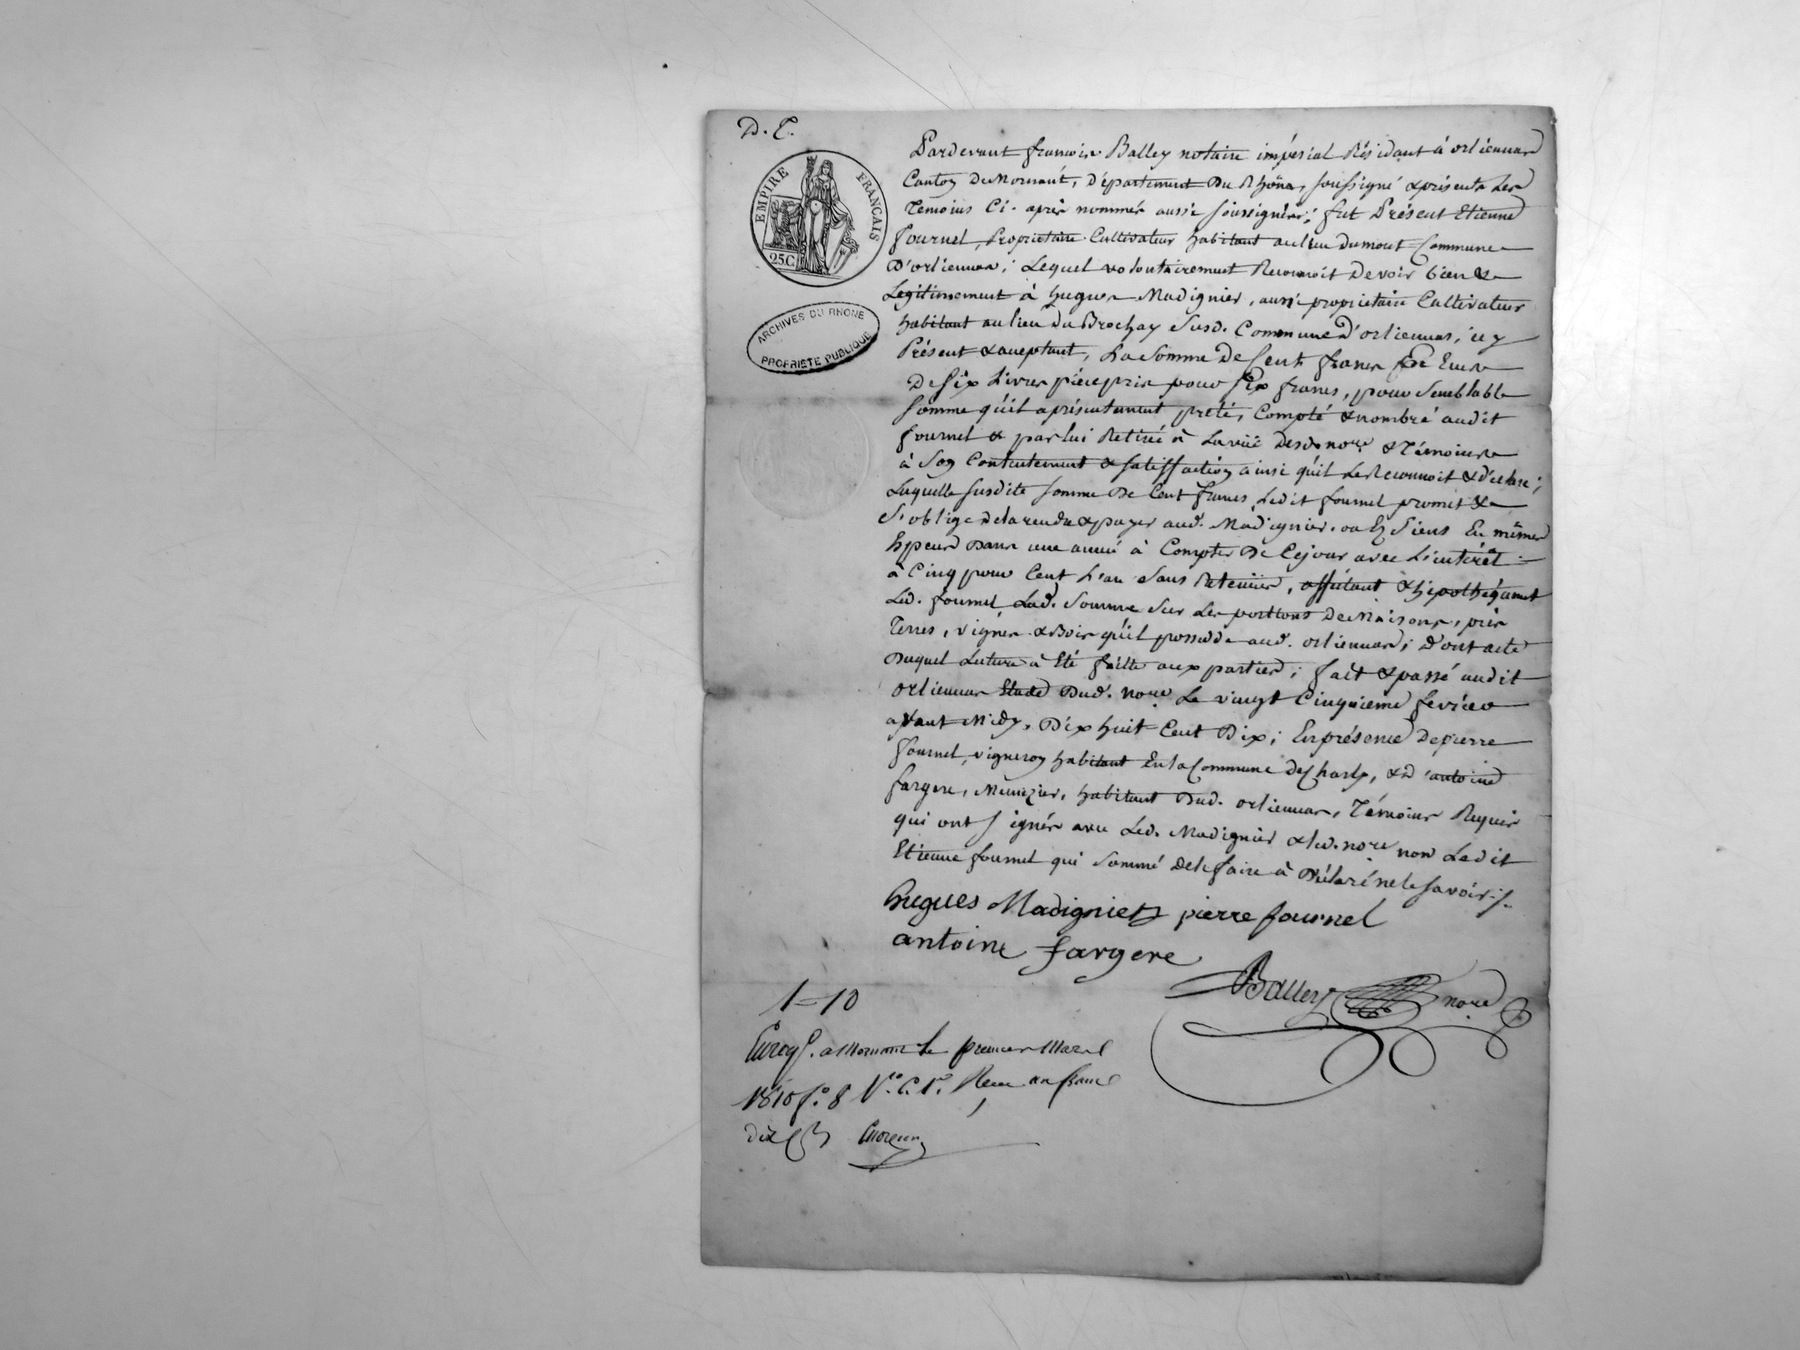 D. T.
EMPIRE FRANCAIS
25 C.
ARCHIVES DU RHONE
PROPRIETE PUBLIQUE
Pardevant françois Balley notaire impérial Résidant à orliennas
Canton de Mornant, Département du Rhône, soussigné & présents Les
Temoins Ci-après nommés aussi soussignés; fut Présent Etienne
fournel, Proprietaire Cultivateur habitant au lieu du mont Commune
D'orliennas; Lequel volontairement Reconnoit devoir bien &
Legitimement à hugues Madignier, aussi proprietaire Cultivateur
habitant au lieu du Brochay Susd. Commune d'orliennas, icy
Présent & acceptant, La Somme De Cent francs En Ecus
De Six Livres pièce pris pour Six francs, pour Semblable
Somme qu'il a présentement preté, Compté & nombré audit
fournel & par lui Retirée à La vüe desd. nore & Témoins
à Son Contentement & satisfaction ainsi qu'il Le Reconnoit & déclare;
Laquelle susdite somme De Cent francs Ledit fournel promet &
S'oblige de la rendre & payer aud. Madignier ou Es Siens En mêmes
Especes Dans une année à Compter De Ce jour avec L'intérêt
à Cinq pour Cent L'an Sans Retenüe, affectant & hipothéquant
Led. fournel Lad. Somme Sur Les portions de Maisons, prés
Terres, vignes & Bois qu'il possede aud. orliennas; D'ont acte
Duquel Lecture à Eté faitte aux parties; fait & passé audit
orliennas Etude Dud. nore Le vingt Cinquieme fevrier
avant Midy, Dix huit Cent Dix; En présence de pierre
fournel, vigneron habitant En la Commune de Charly, & D'antoine
fargere, Meunier, habitant Dud. orliennas, Témoins Requis
qui ont signés avec Led. Madignier & led. nore non Ledit
Etienne fournel qui Sommé de le faire à Déclaré ne le savoir./.
hugues Madignier pierre fournel
antoine fargere
Balley nore
1=10
Enregé. a Mornant le premier Mars
1810 fo. 8 Vo. C. 1re. Reçu un franc
dix